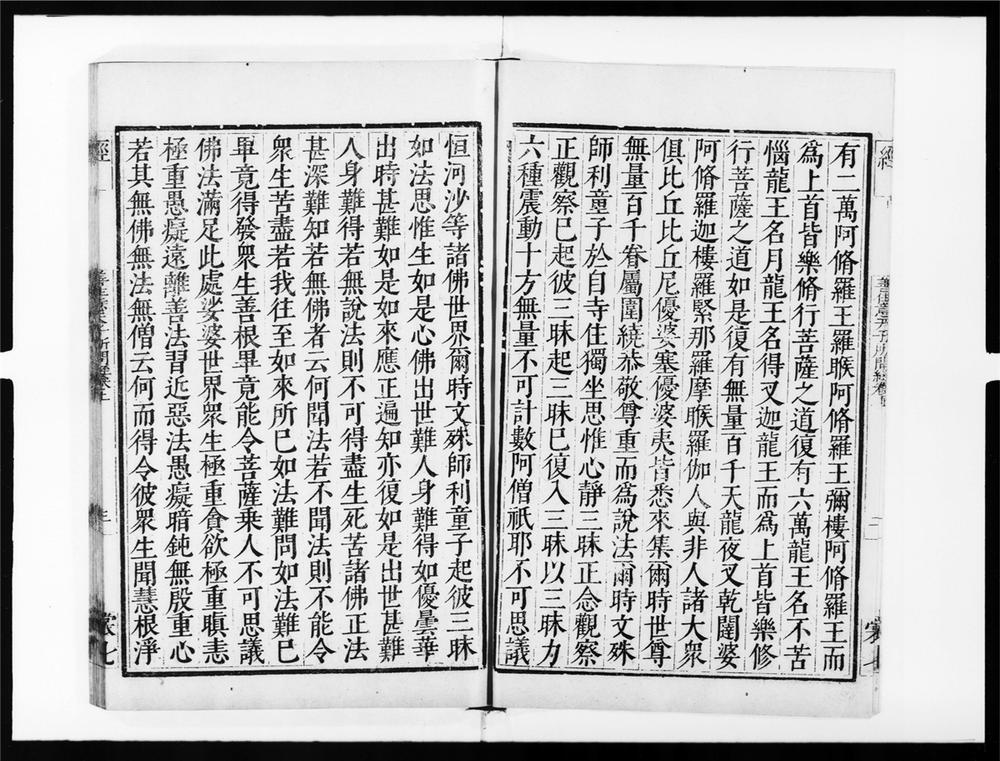 有二萬阿脩羅王羅睺阿脩羅王彌樓阿脩羅王而
爲上首皆樂脩行菩薩之道復有六萬龍王名不苦
惱龍王名月龍王名得叉迦龍王而爲上首皆樂修
行菩薩之道如是復有無量百千天龍夜叉乾闥婆
阿脩羅迦樓羅緊那羅摩睺羅伽人與非人諸大衆
俱比丘比丘尼優婆塞優婆夷皆悉來集爾時世尊
無量百千眷屬圍繞恭敬尊重而爲說法爾時文殊
師利童子於自寺住獨坐思惟心靜三昧正念觀察
正觀察已起彼三昧起三昧已復入三昧以三昧力
六種震動十方無量不可計數阿僧祇耶不可思議
恒河沙等諸佛世界爾時文殊師利童子起彼三昧
如法思惟生如是心佛出世難人身難得如優曇華
出時甚難如是如來應正遍知亦復如是出世甚難
人身難得若無說法則不可得盡生死苦諸佛正法
甚深難知若無佛者云何聞法若不聞法則不能令
衆生苦盡若我往至如來所已如法難問如法難已
畢竟得發衆生善根畢竟能令菩薩乘人不可思議
佛法滿足此處娑婆世界衆生極重貪欲極重瞋恚
極重愚癡遠離善法習近惡法愚癡暗鈍無殷重心
若其無佛無法無僧云何而得令彼衆生聞慧根淨